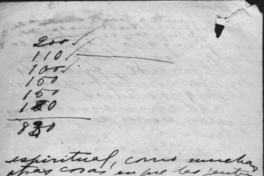 200
110
100
150
150
120
830
espiritual, como muchas
otras cosas en que les